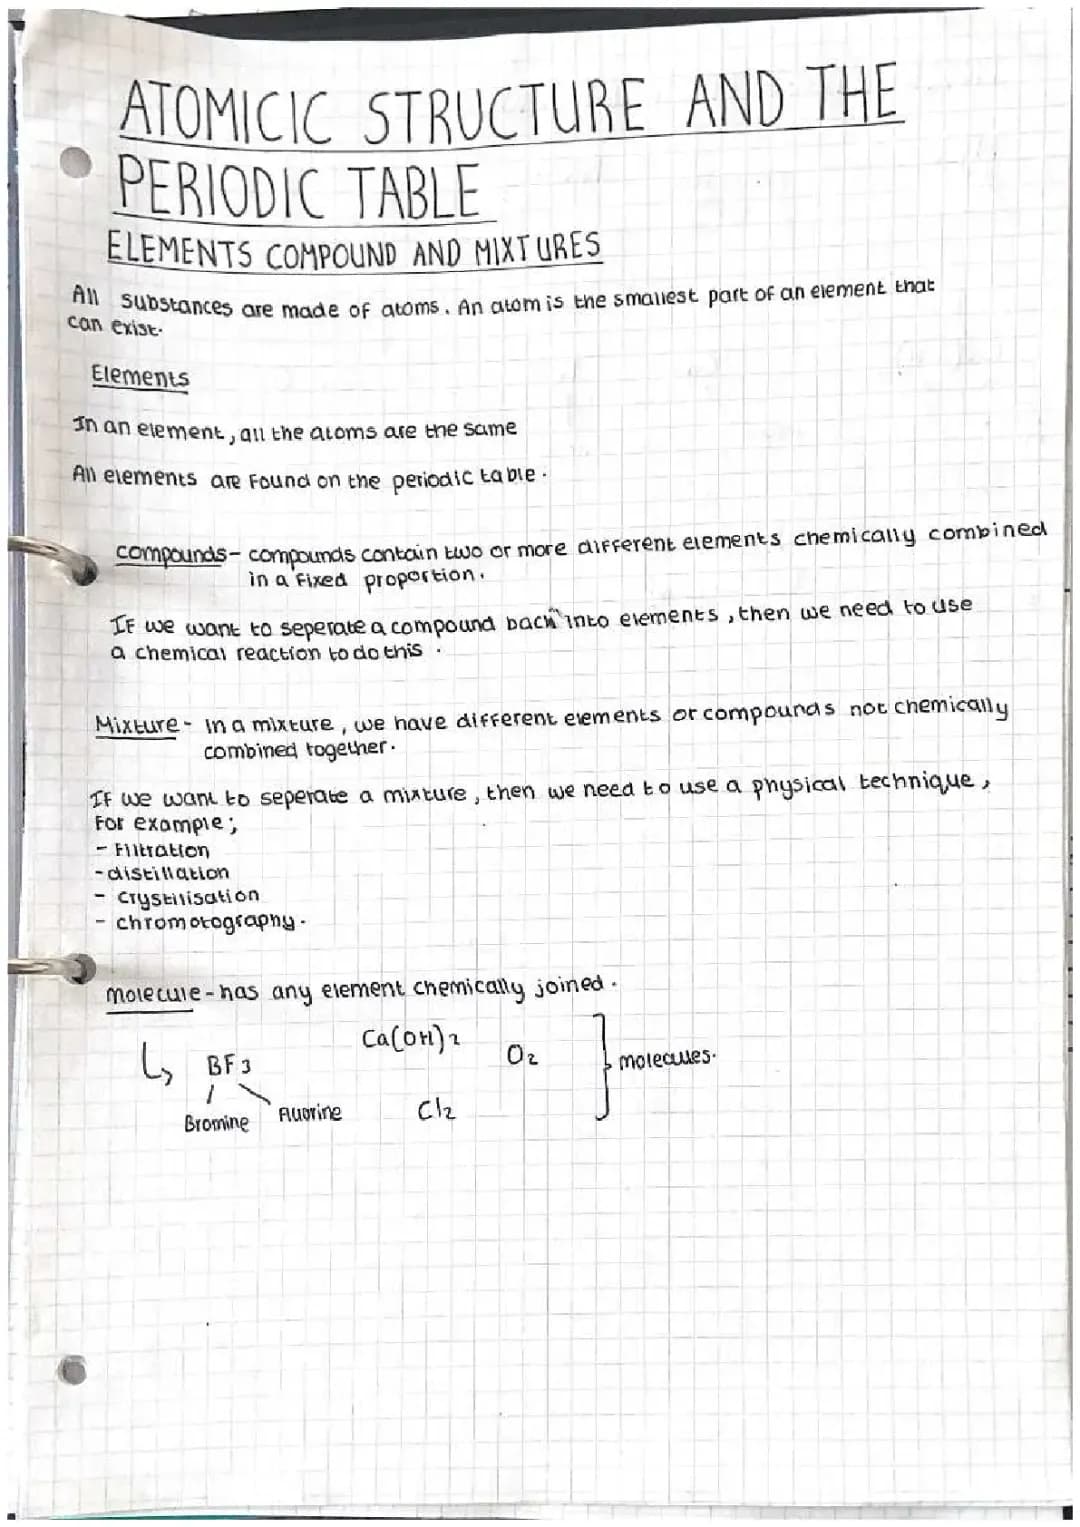 ATOMICIC STRUCTURE AND THE
PERIODIC TABLE
ELEMENTS COMPOUND AND MIXTURES
All substances are made of atoms. An atom is the smallest part of an element that
can exist.
Elements
In an element, all the atoms are the same
All elements are found on the periodic table.
compounds- compounds contain two or more different elements chemically combined
in a fixed proportion.
If we want to seperate a compound back into elements, then we need to use
a chemical reaction to do this.
Mixture- in a mixture, we have different elements or compounds not chemically
combined together.
If we want to seperate a mixture, then we need to use a physical technique,
for example;
- Filtration
- distillation
- Crystilisation
- chromotography.
molecule- has any element chemically joined.
↳ BF3 Ca(OH)2 O2 } molecules.
Bromine Fluorine Cl2